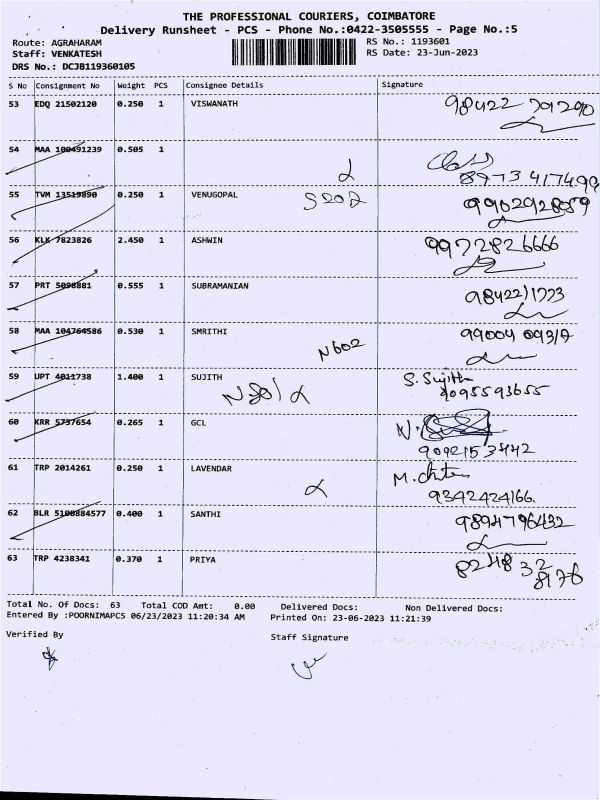 THE PROFESSIONAL COURIERS, COIMBATORE
Delivery Runsheet - PCS - Phone No.:0422-3505555 - Page No.:5
Route: AGRAHARAM RS No.: 1193601
Staff: VENKATESH RS Date: 23-Jun-2023
DRS No.: DCJB119360105
S No Consignment No Weight PCS Consignee Details Signature
53 EDQ 21502120 0.250 1 VISWANATH 98422 701290
54 MAA 100491239 0.505 1
89734 17499
55 TVM 13519890 0.250 1 VENUGOPAL S202 9902928859
56 KLK 7823826 2.450 1 ASHWIN 9972826666
57 PRT 5098881 0.555 1 SUBRAMANIAN
58 MAA 104764586 0.530 1 SMRITHI
N602
59 UPT 4011738 1.400 1 SUJITH S. Sujith
N801 9095593655
60 KRR 5757654 0.265 1 GCL
9092153442
61 TRP 2014261 0.250 1 LAVENDAR
9342424166.
62 BLR 5100884577 0.400 1 SANTHI 9894796432
63 TRP 4238341 0.370 1 PRIYA 8248 32
8176
Total No. Of Docs: 63 Total COD Amt: 0.00 Delivered Docs: Non Delivered Docs:
Entered By :POORNIMAPCS 06/23/2023 11:20:34 AM Printed On: 23-06-2023 11:21:39
Verified By Staff Signature